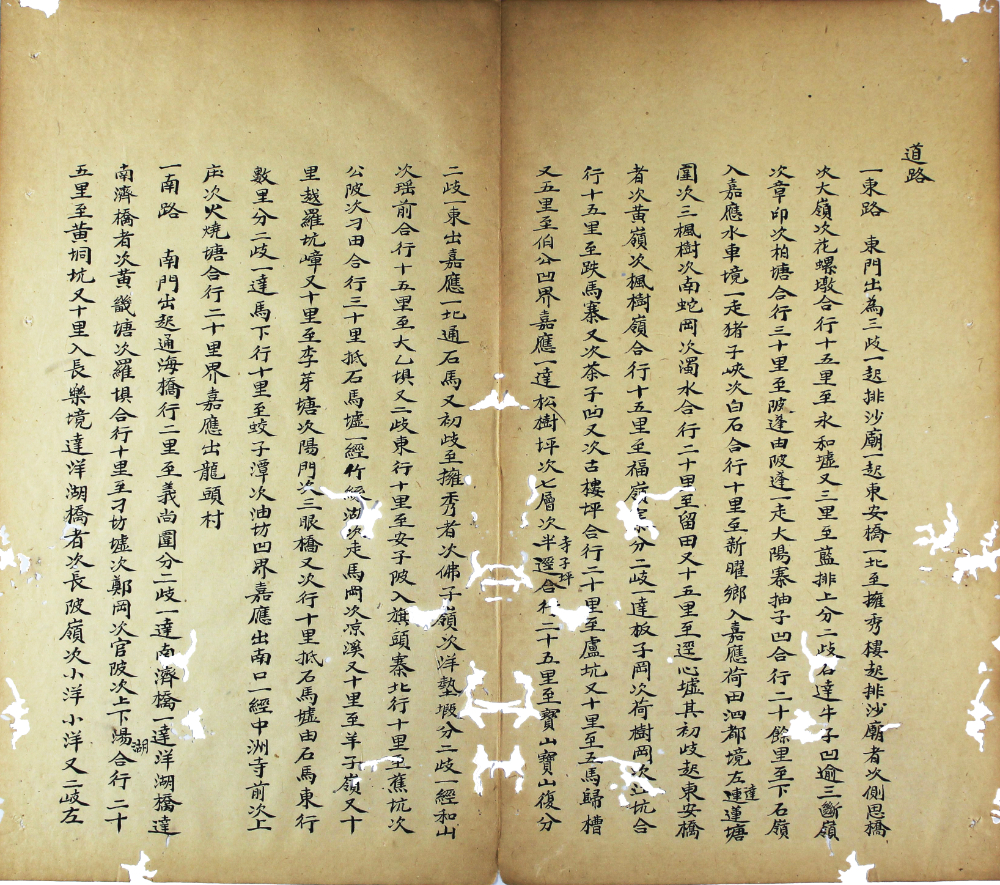 道路
一東路　東門出為三歧一起排沙廟一起東安橋一北至擁秀樓起排沙廟者次側思橋
次大嶺次花螺墩合行十五里至永和墟又三里至藍排上分二歧右達牛子凹逾三斷嶺
次章印次柏塘合行三十里至陂蓬由陂蓬一走大陽寨抽子凹合行二十餘里至下石嶺
入嘉應水車境一走猪子峽次白石合行十里至新曜鄉入嘉應荷田泗都境左連達蓮塘
圍次三楓樹次南蛇岡次濁水合行二十里至留田又十五里至逕心墟其初歧起東安橋
者次黃嶺次楓樹嶺合行十五里至福嶺分二歧一達板子岡次荷樹岡次坑合
行十五里至跌馬寨又次茶子凹又次古樓坪合行二十里至盧坑又十里至五馬歸槽
又五里至伯公凹界嘉應一達松樹坪次七層次半逕寺子坪合行二十五里至寶山寶山復分
二歧一東出嘉應一北通石馬又初歧至擁秀者次佛子嶺次洋塾塅分二歧一經和山
次瑶前合行十五里至大乙塤又二歧東行十里至安子陂入旗頭寨北行十里至蕉坑次
公陂次刁田合行三十里抵石馬墟一經竹絲湖次走馬岡次凉溪又十里至羊子嶺又十
里越羅坑嶂又十里至李芽塘次陽門次三眼橋又次行十里抵石馬墟由石馬東行
數里分二歧一達馬下行十里至蛟子潭次油坊凹界嘉應出南口一經中洲寺前次上
庄次火燒塘合行二十里界嘉應出龍頭村
一南路　南門出起通海橋行二里至義尚圍分二歧一達南濟橋一達洋湖橋達
南濟橋者次黃畿塘次羅塤合行十里至刁坊墟次鄭岡次官陂次上下湯湖合行二十
五里至黃垌坑又十里入長樂境達洋湖橋者次長陂嶺次小洋小洋又二歧左